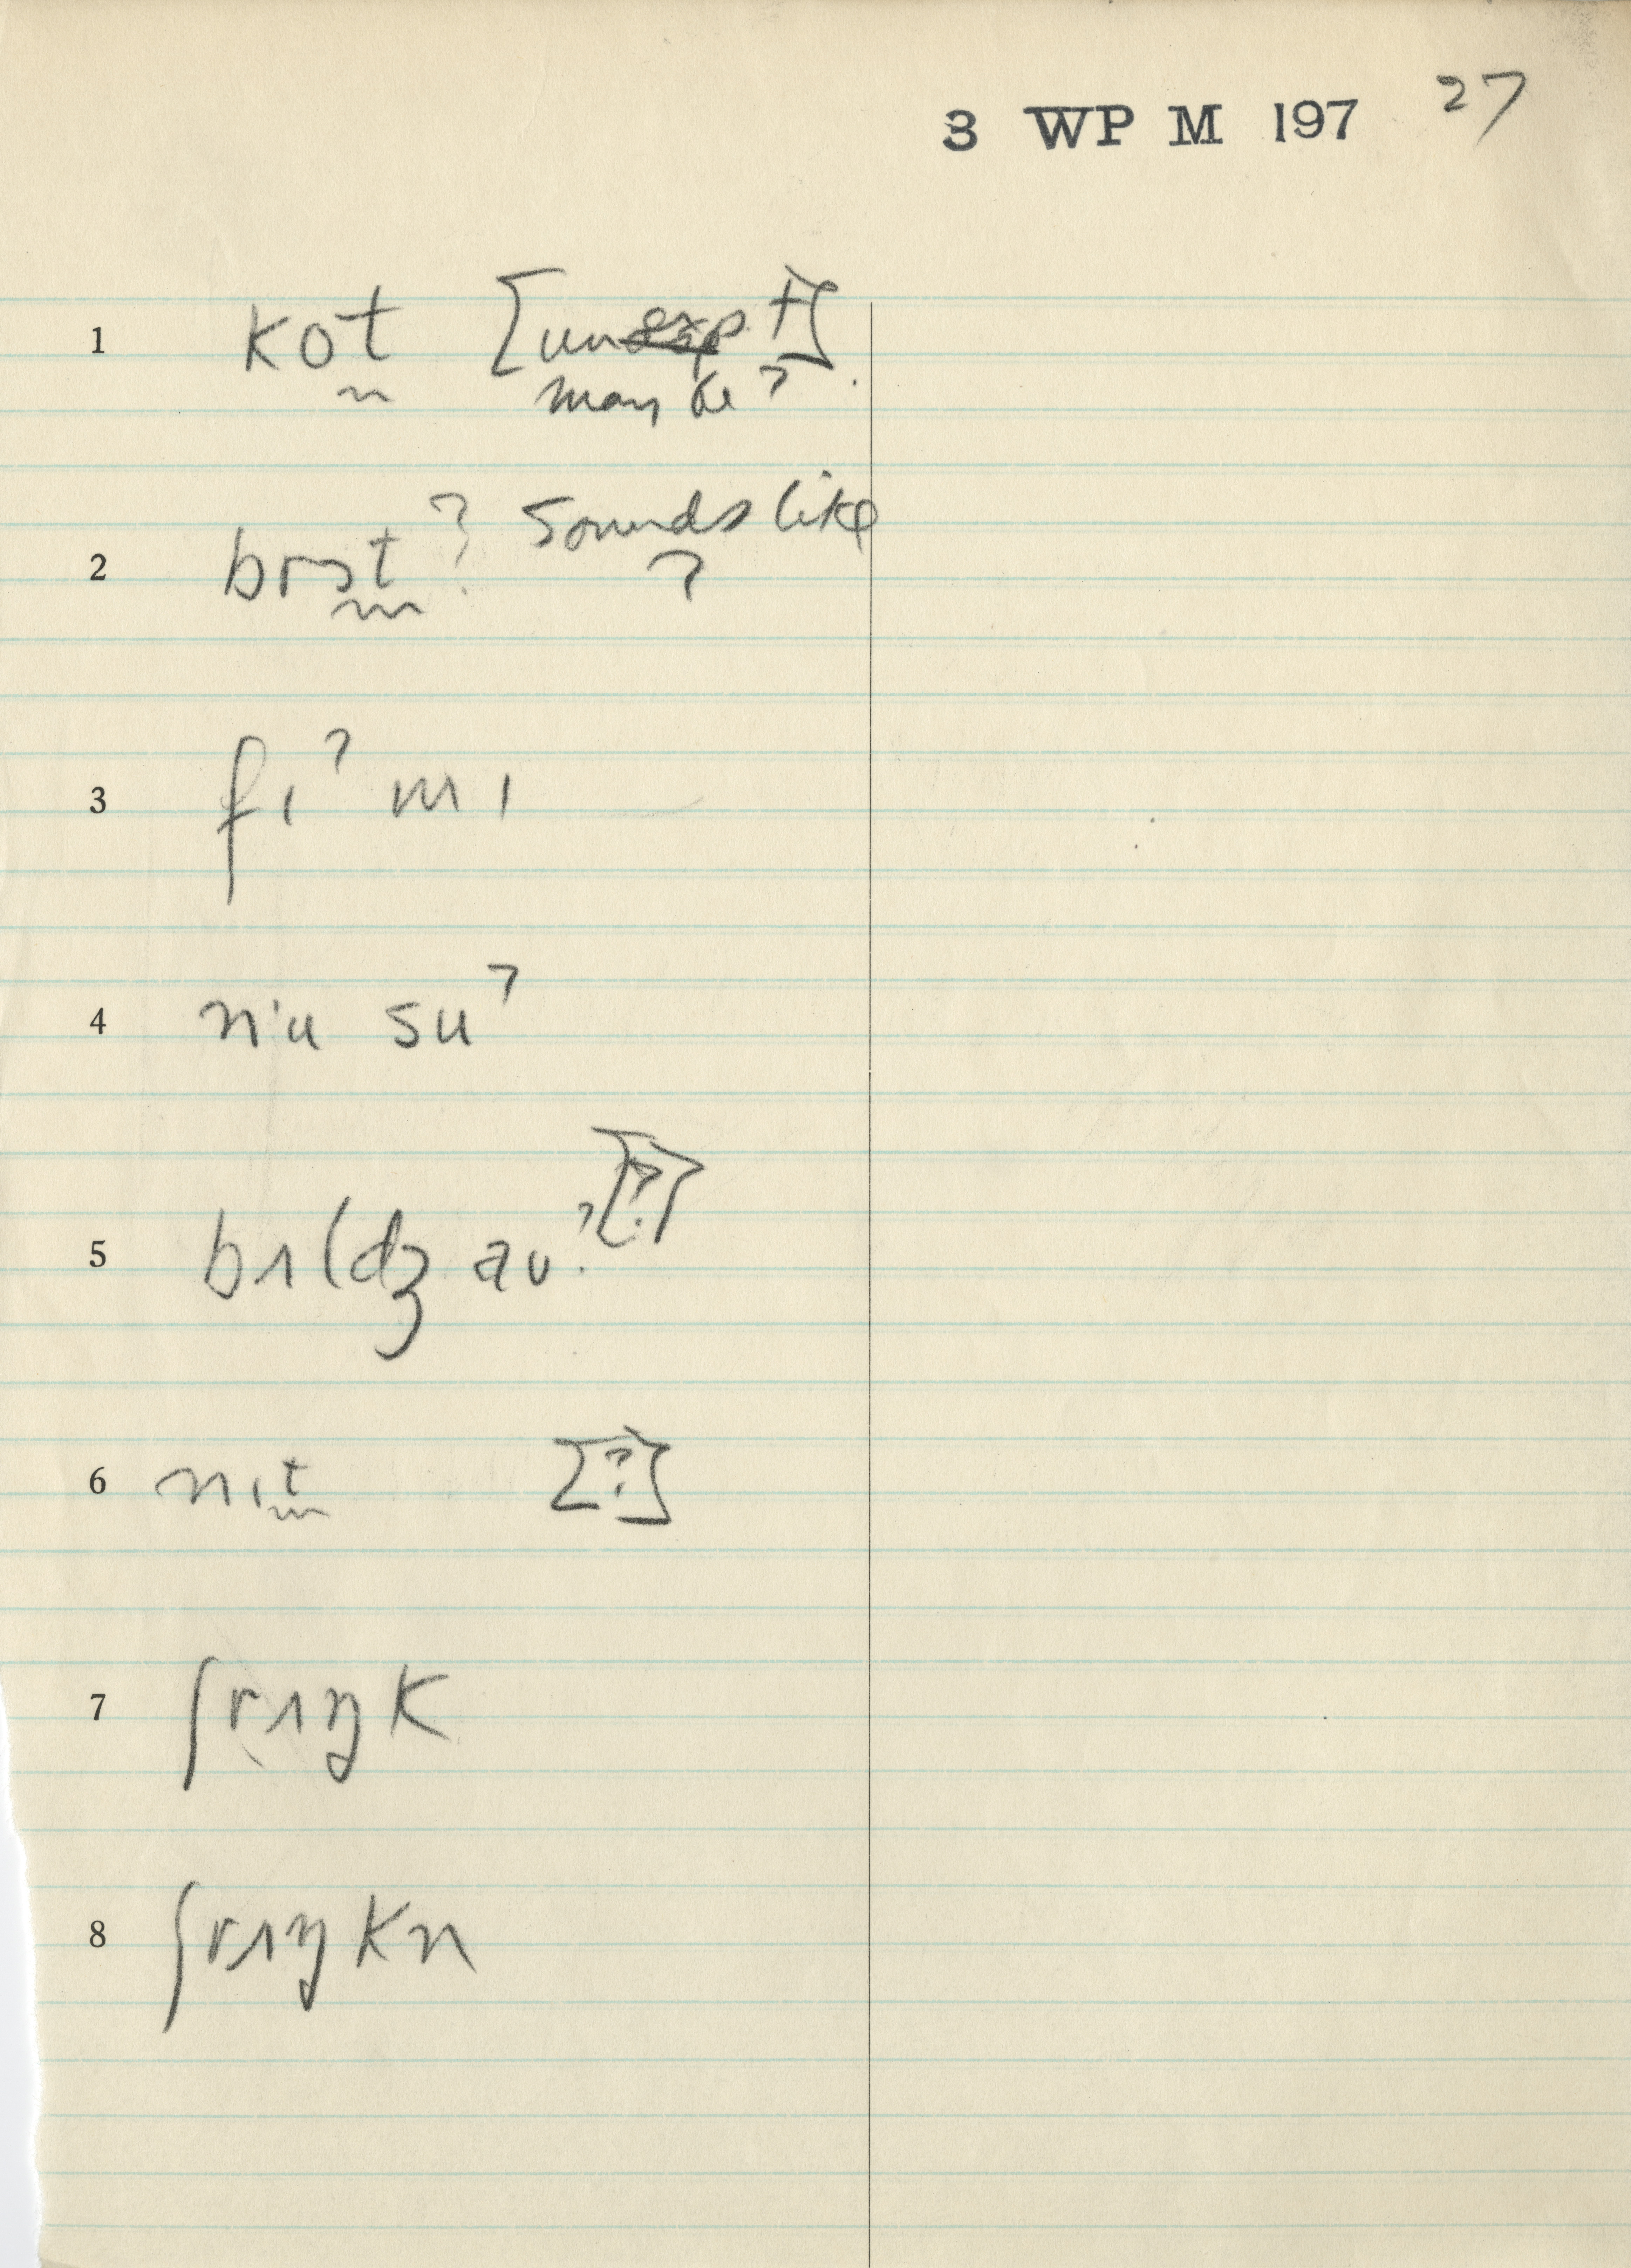 3 WP M 197 27
1 kot [unexp t]
may be?
2 brɔt ? sounds like
?
3 fɪ? mɪ
4 n'u su?
5 bɪldʒ aʊ? [?]
6 nɪt [?]
7 ʃrɪŋk
8 ʃrɪŋkn